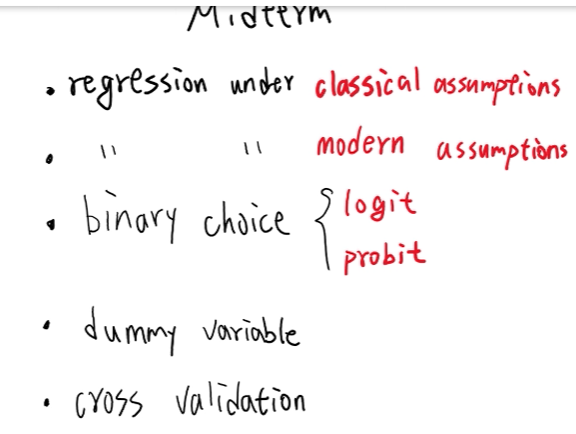 Midterm
• regression under classical assumptions
• " " modern assumptions
• binary choice { logit
probit
• dummy variable
• cross validation